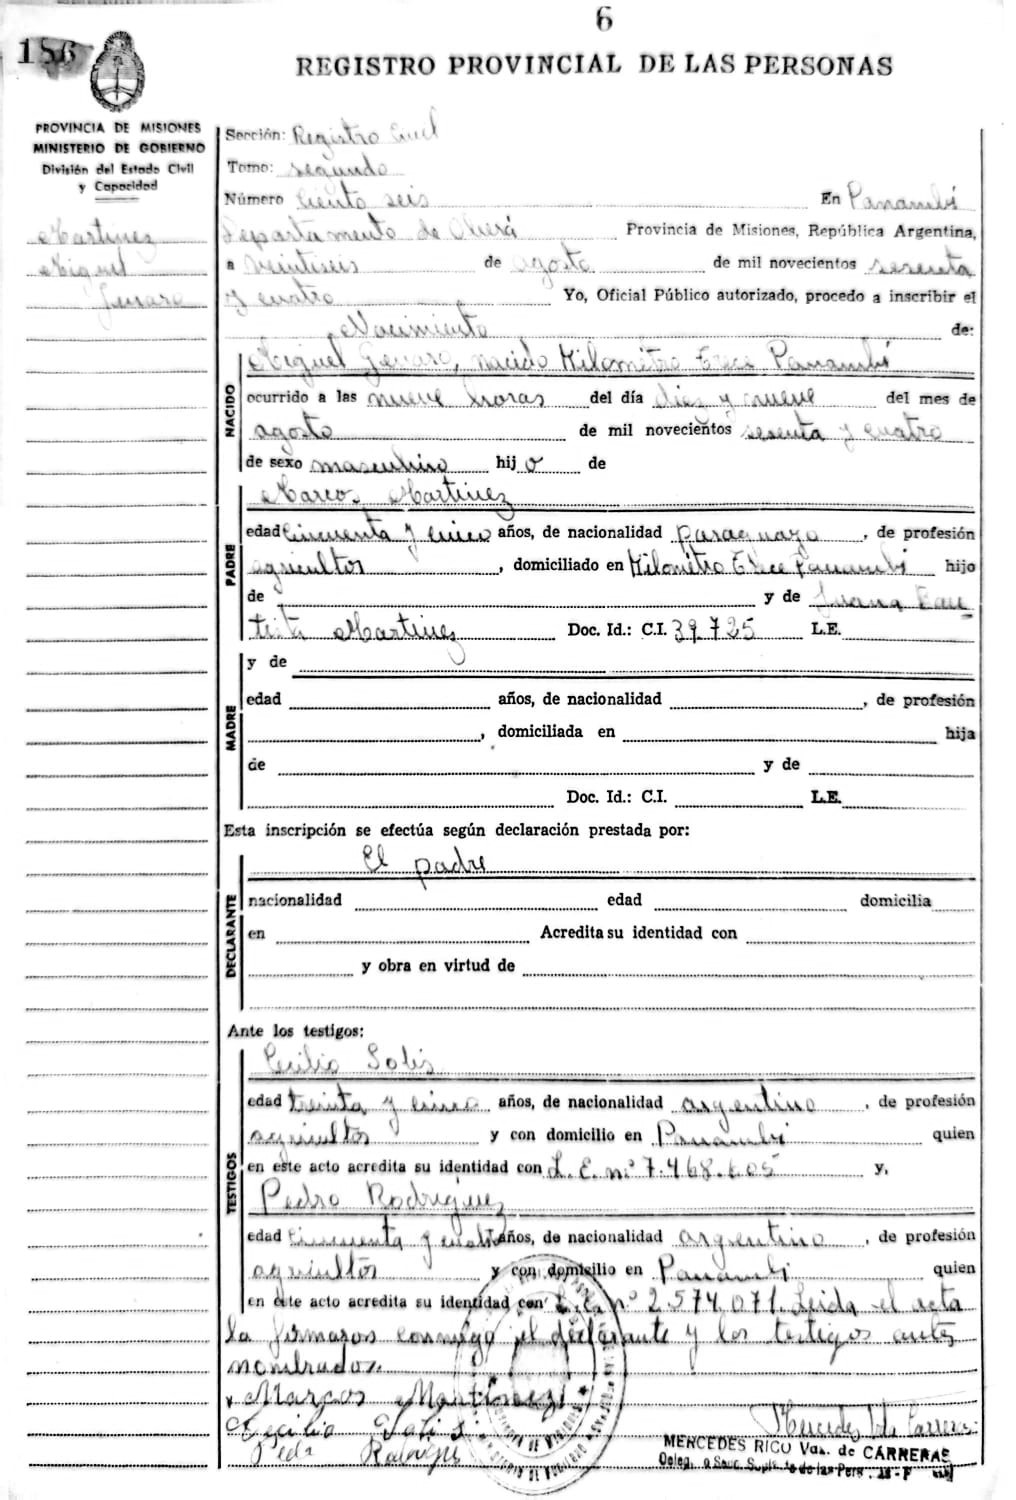 6
186
REGISTRO PROVINCIAL DE LAS PERSONAS
PROVINCIA DE MISIONES
MINISTERIO DE GOBIERNO
División del Estado Civil
y Capacidad
Martinez
Miguel
Genaro
Sección: Registro Civil
Tomo: segundo
Número Ciento seis En Panambí
Departamento de Oberá Provincia de Misiones, República Argentina,
a veintiseis de agosto de mil novecientos sesenta
y cuatro Yo, Oficial Público autorizado, procedo a inscribir el
Nacimiento de:
NACIDO
Miguel Genaro, nacido Kilometro Trece Panambí
ocurrido a las nueve horas del día diez y nueve del mes de
agosto de mil novecientos sesenta y cuatro
de sexo masculino hij o de
PADRE
Marcos Martinez
edad Cincuenta y cinco años, de nacionalidad paraguayo, de profesión
agricultor, domiciliado en Kilometro Trece Panambí hijo
de y de Juana Bau
tista Martinez Doc. Id.: C.I. 39.725 L.E.
MADRE
y de
edad años, de nacionalidad , de profesión
, domiciliada en hija
de y de
Doc. Id.: C.I. L.E.
Esta inscripción se efectúa según declaración prestada por:
DECLARANTE
El padre
nacionalidad edad domicilia
en Acredita su identidad con
y obra en virtud de
Ante los testigos:
TESTIGOS
Cecilio Solis
edad treinta y cinco años, de nacionalidad argentino, de profesión
agricultor y con domicilio en Panambí quien
en este acto acredita su identidad con L.E. nº 7.468.605 y,
Pedro Rodriguez
edad Cincuenta y cuatro años, de nacionalidad argentino, de profesión
agricultor y con domicilio en Panambí quien
en este acto acredita su identidad con L.E. nº 2.574.071. Leida el acta
la firmaron conmigo el declarante y los testigos antes
nombrados.
Marcos Martinez
Cecilio Solis
Mercedes Vda Carreras
MERCEDES RICO Vda. de CARRERAS